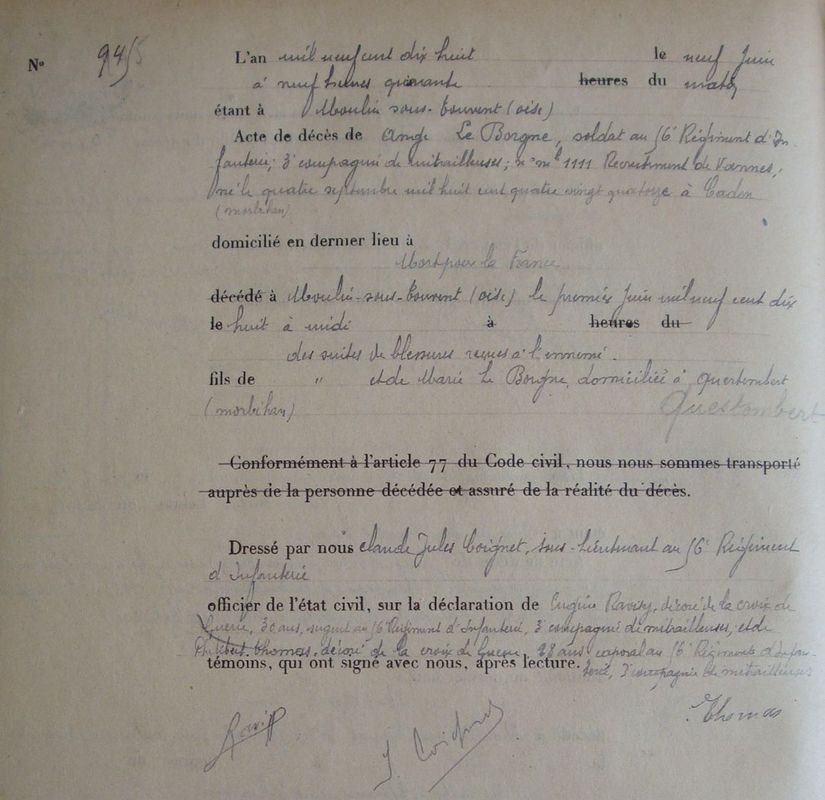 N° 945
L'an mil neuf cent dix huit le neuf Juin
à neuf heures quarante heures du matin
étant à Moulin sous-Touvent (oise)
Acte de décès de Ange Le Borgne, soldat au 56e Régiment d'In-
fanterie, 3e compagnie de mitrailleuses; n° mle 1111 Recrutement de Vannes,
né le quatre septembre mil huit cent quatre vingt quatorze à Caden
(morbihan)
domicilié en dernier lieu à
Mort pour la France
décédé à Moulin-sous-Touvent (oise) le premier Juin mil neuf cent dix
le huit à midi à heures du
des suites de blessures reçues à l'ennemi.
fils de " et de Marie Le Borgne, domiciliée à Questembert
(morbihan) Questembert
Conformément à l'article 77 du Code civil, nous nous sommes transporté
auprès de la personne décédée et assuré de la réalité du décès.
Dressé par nous Claude Jules Coignet, sous-lieutenant au 56e Régiment
d'Infanterie
officier de l'état civil, sur la déclaration de Eugène Ravisy, décoré de la croix de
Guerre, 30 ans, sergent au 56e Régiment d'Infanterie, 3e compagnie de mitrailleuses, et de
Philibert Thomas, décoré de la croix de Guerre, 28 ans, caporal au 56e Régiment d'Infan-
témoins, qui ont signé avec nous, après lecture. terie, 3e compagnie de mitrailleuses
J Coignet
Thomas